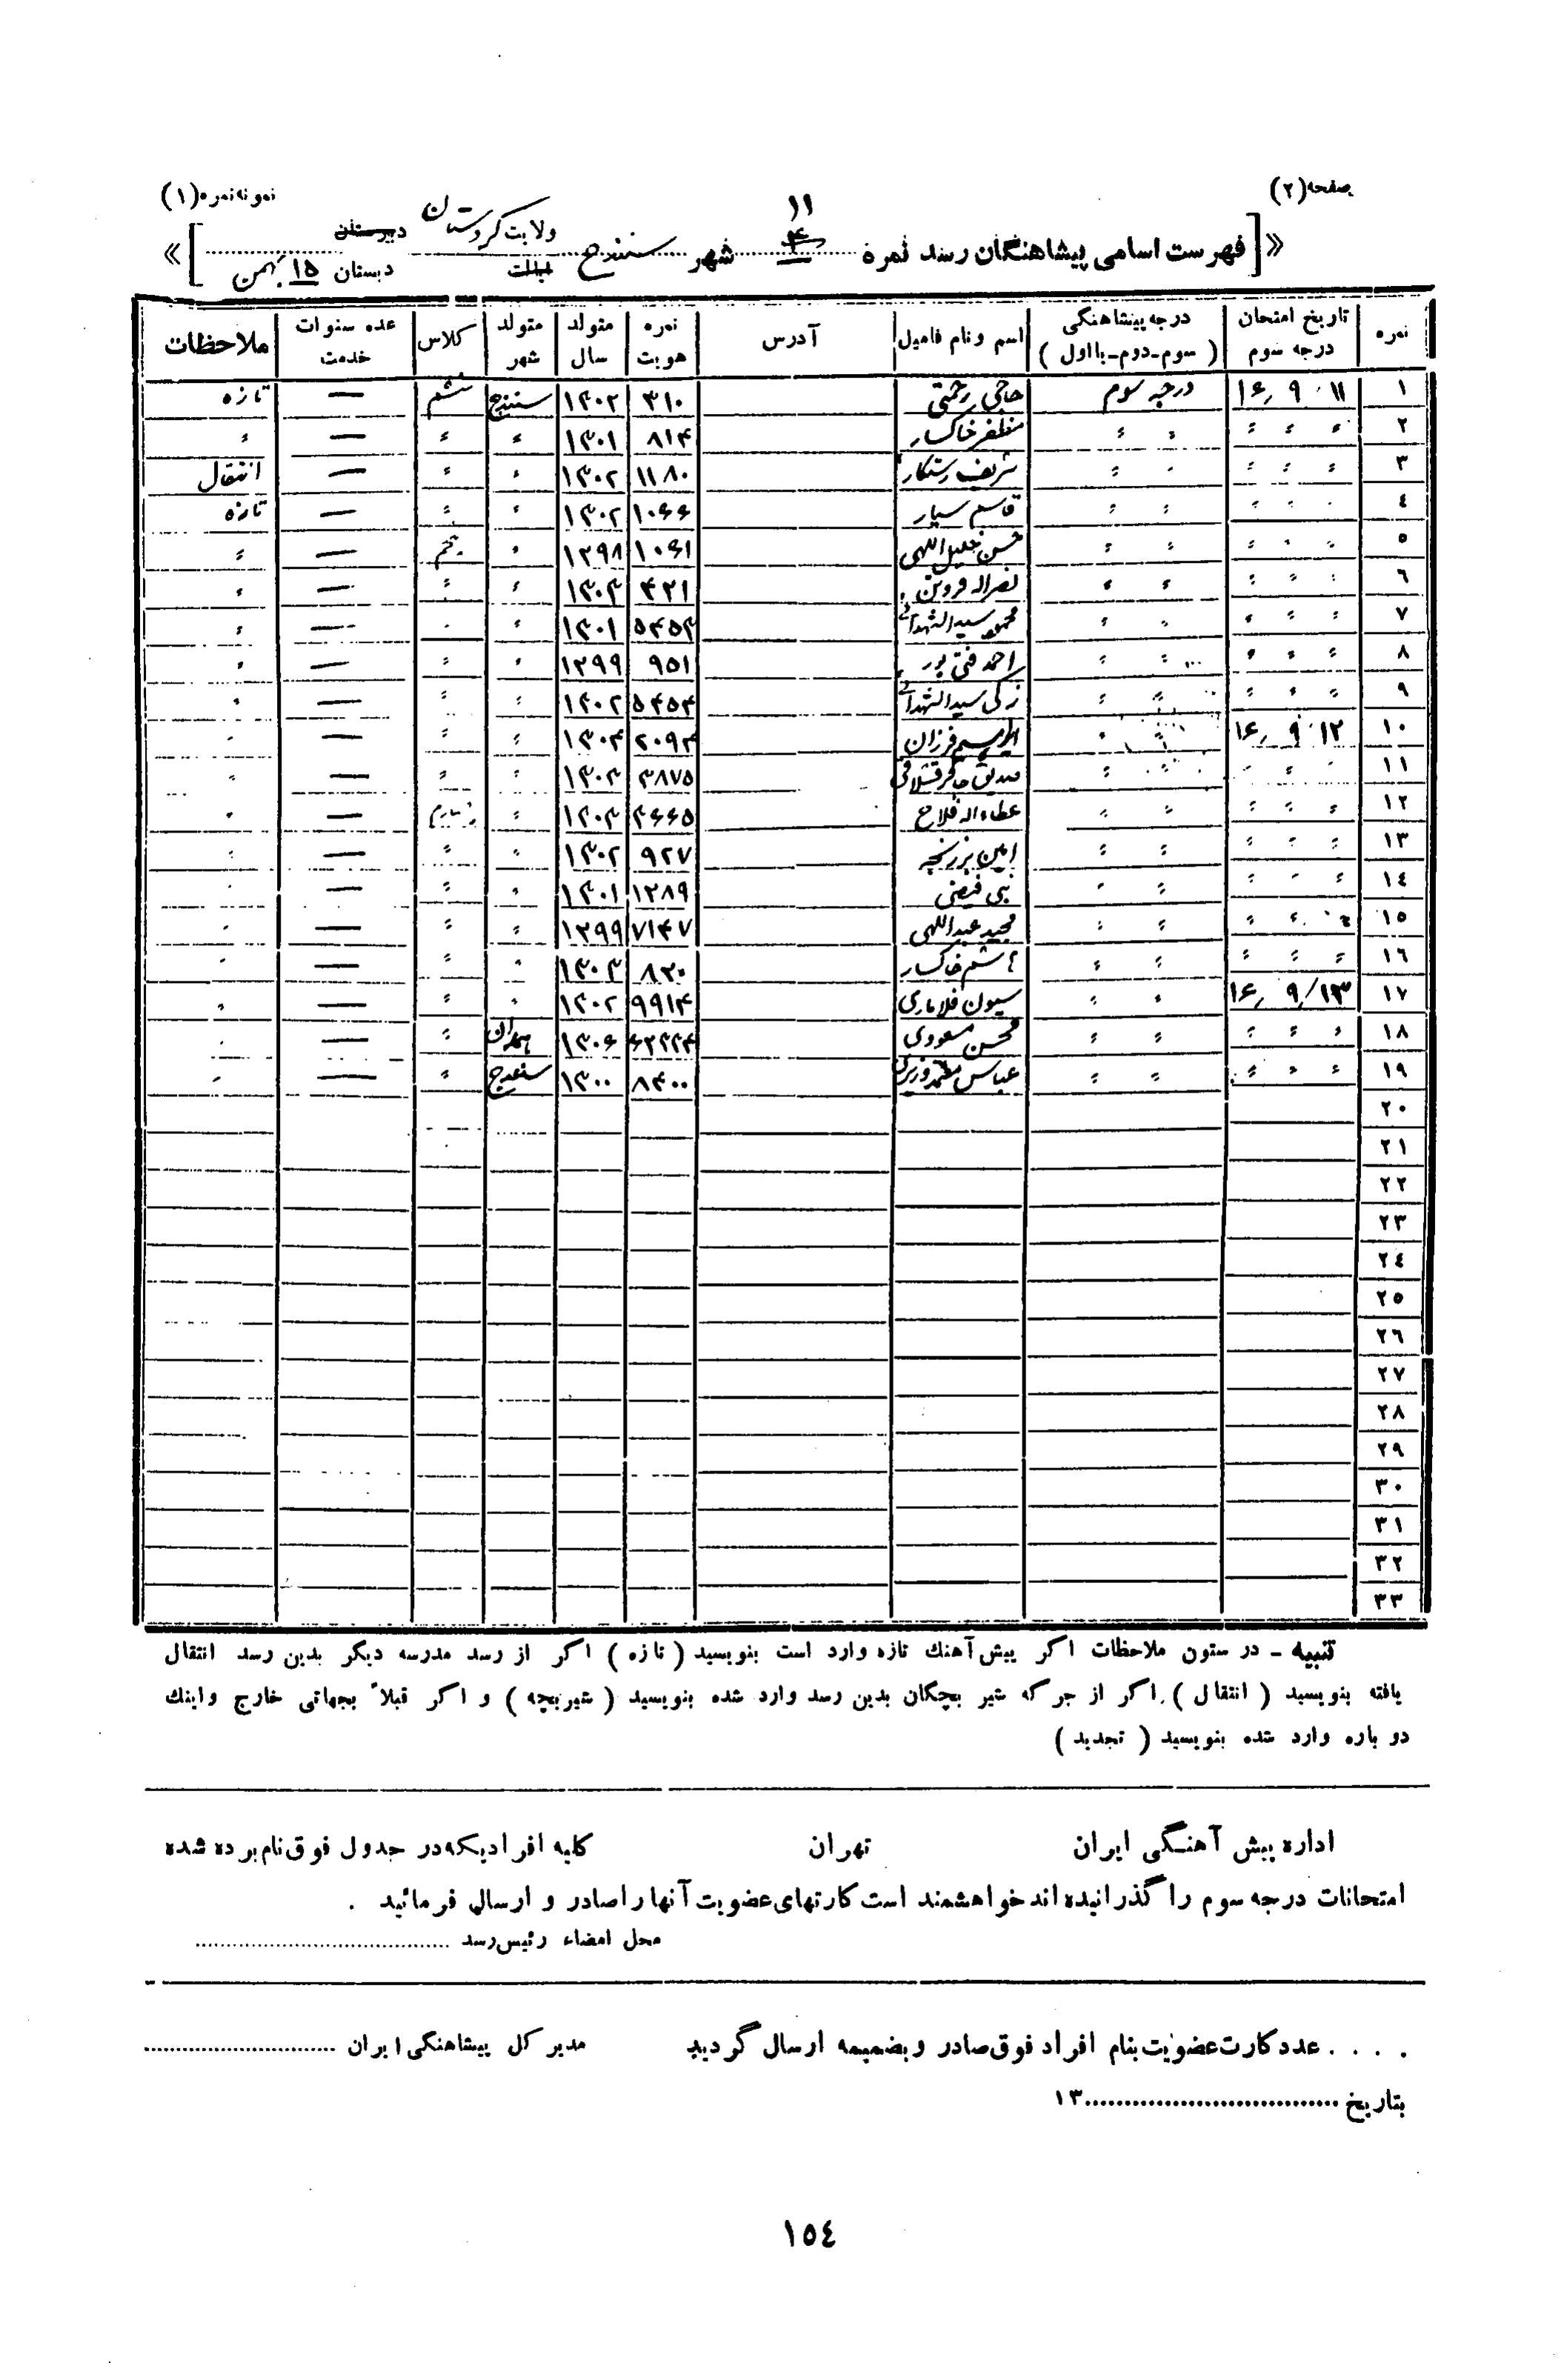 صفحه (۲)
نمونه نمره (۱)
۱۱
« [ فهرست اسامی پیشاهنگان رسد نمره ۴ شهر سنندج ولایت کردستان ایالت دبیرستان دبستان ۱۵ بهمن ] »
نمره | تاریخ امتحان درجه سوم | درجه پیشاهنگی ( سوم - دوم - یا اول ) | اسم و نام فامیل | آدرس | نمره هویت | متولد سال | متولد شهر | کلاس | عده سنوات خدمت | ملاحظات
۱ | ۱۱ ۹ ۱۶ | درجه سوم | حاجی رحمتی | | ۳۱۰ | ۱۳۰۲ | سنندج | ششم | — | تازه
۲ | 〃 〃 〃 | 〃 〃 | مظفر خاکسار | | ۸۱۴ | ۱۳۰۱ | 〃 | 〃 | — | 〃
۳ | 〃 〃 〃 | 〃 〃 | شریف رستگار | | ۱۱۸۰ | ۱۳۰۲ | 〃 | 〃 | — | انتقال
۴ | 〃 〃 〃 | 〃 〃 | قاسم سیار | | ۱۰۶۶ | ۱۳۰۲ | 〃 | 〃 | — | تازه
۵ | 〃 〃 〃 | 〃 〃 | حسن خلیل اللهی | | ۱۰۶۱ | ۱۲۹۸ | 〃 | پنجم | — | 〃
۶ | 〃 〃 〃 | 〃 〃 | نصراله | | ۴۲۱ | ۱۳۰۳ | 〃 | 〃 | — | 〃
۷ | 〃 〃 〃 | 〃 〃 | محمود سیدالشهدائی | | ۵۴۵۳ | ۱۳۰۱ | 〃 | 〃 | — | 〃
۸ | 〃 〃 〃 | 〃 〃 | احمد فتی پور | | ۹۵۱ | ۱۲۹۹ | 〃 | 〃 | — | 〃
۹ | 〃 〃 〃 | 〃 〃 | زکی سیدالشهدائی | | ۵۴۵۴ | ۱۳۰۲ | 〃 | 〃 | — | 〃
۱۰ | ۱۲ ۹ ۱۶ | 〃 〃 | ابراهیم فرزان | | ۲۰۹۴ | ۱۳۰۴ | 〃 | 〃 | — | 〃
۱۱ | 〃 〃 〃 | 〃 〃 | صدیق | | ۳۸۷۵ | ۱۳۰۳ | 〃 | 〃 | — | 〃
۱۲ | 〃 〃 〃 | 〃 〃 | عطاءاله فلاح | | ۴۶۶۵ | ۱۳۰۳ | 〃 | چهارم | — | 〃
۱۳ | 〃 〃 〃 | 〃 〃 | امین برزنجه | | ۹۲۷ | ۱۳۰۲ | 〃 | 〃 | — | 〃
۱۴ | 〃 〃 〃 | 〃 〃 | نبی فیضی | | ۱۲۸۹ | ۱۳۰۱ | 〃 | 〃 | — | 〃
۱۵ | 〃 〃 〃 | 〃 〃 | مجید عبداللهی | | ۷۱۴۷ | ۱۲۹۹ | 〃 | 〃 | — | 〃
۱۶ | 〃 〃 〃 | 〃 〃 | هاشم خاکسار | | ۸۲۰ | ۱۳۰۳ | 〃 | 〃 | — | 〃
۱۷ | ۱۳ ۹ ۱۶ | 〃 〃 | سیون | | ۹۹۱۴ | ۱۳۰۲ | 〃 | 〃 | — | 〃
۱۸ | 〃 〃 〃 | 〃 〃 | محسن مسعودی | | ۶۲۲۲۴ | ۱۳۰۶ | | 〃 | — | 〃
۱۹ | 〃 〃 〃 | 〃 〃 | عباس معتمد وزیری | | ۸۴۰۰ | ۱۳۰۰ | سنندج | 〃 | — | 〃
۲۰
۲۱
۲۲
۲۳
۲۴
۲۵
۲۶
۲۷
۲۸
۲۹
۳۰
۳۱
۳۲
۳۳
تنبیه - در ستون ملاحظات اگر پیش آهنك تازه وارد است بنویسید ( تازه ) اگر از رسد مدرسه دیگر بدین رسد انتقال
یافته بنویسید ( انتقال ) . اگر از جرگه شیر بچگان بدین رسد وارد شده بنویسید ( شیر بچه ) و اگر قبلاً بجهاتی خارج و اینك
دو باره وارد شده بنویسید ( تجدید )
اداره پیش آهنگی ایران تهران کلیه افرادیکه در جدول فوق نام برده شده
امتحانات درجه سوم را گذرانیده اند خواهشمند است کارتهای عضویت آنها را صادر و ارسال فرمائید .
محل امضاء رئیس رسد ........
. . . . عدد کارت عضویت بنام افراد فوق صادر و بضمیمه ارسال گردید مدیر کل پیشاهنگی ایران ........
بتاریخ ........ ۱۳
۱۵٤